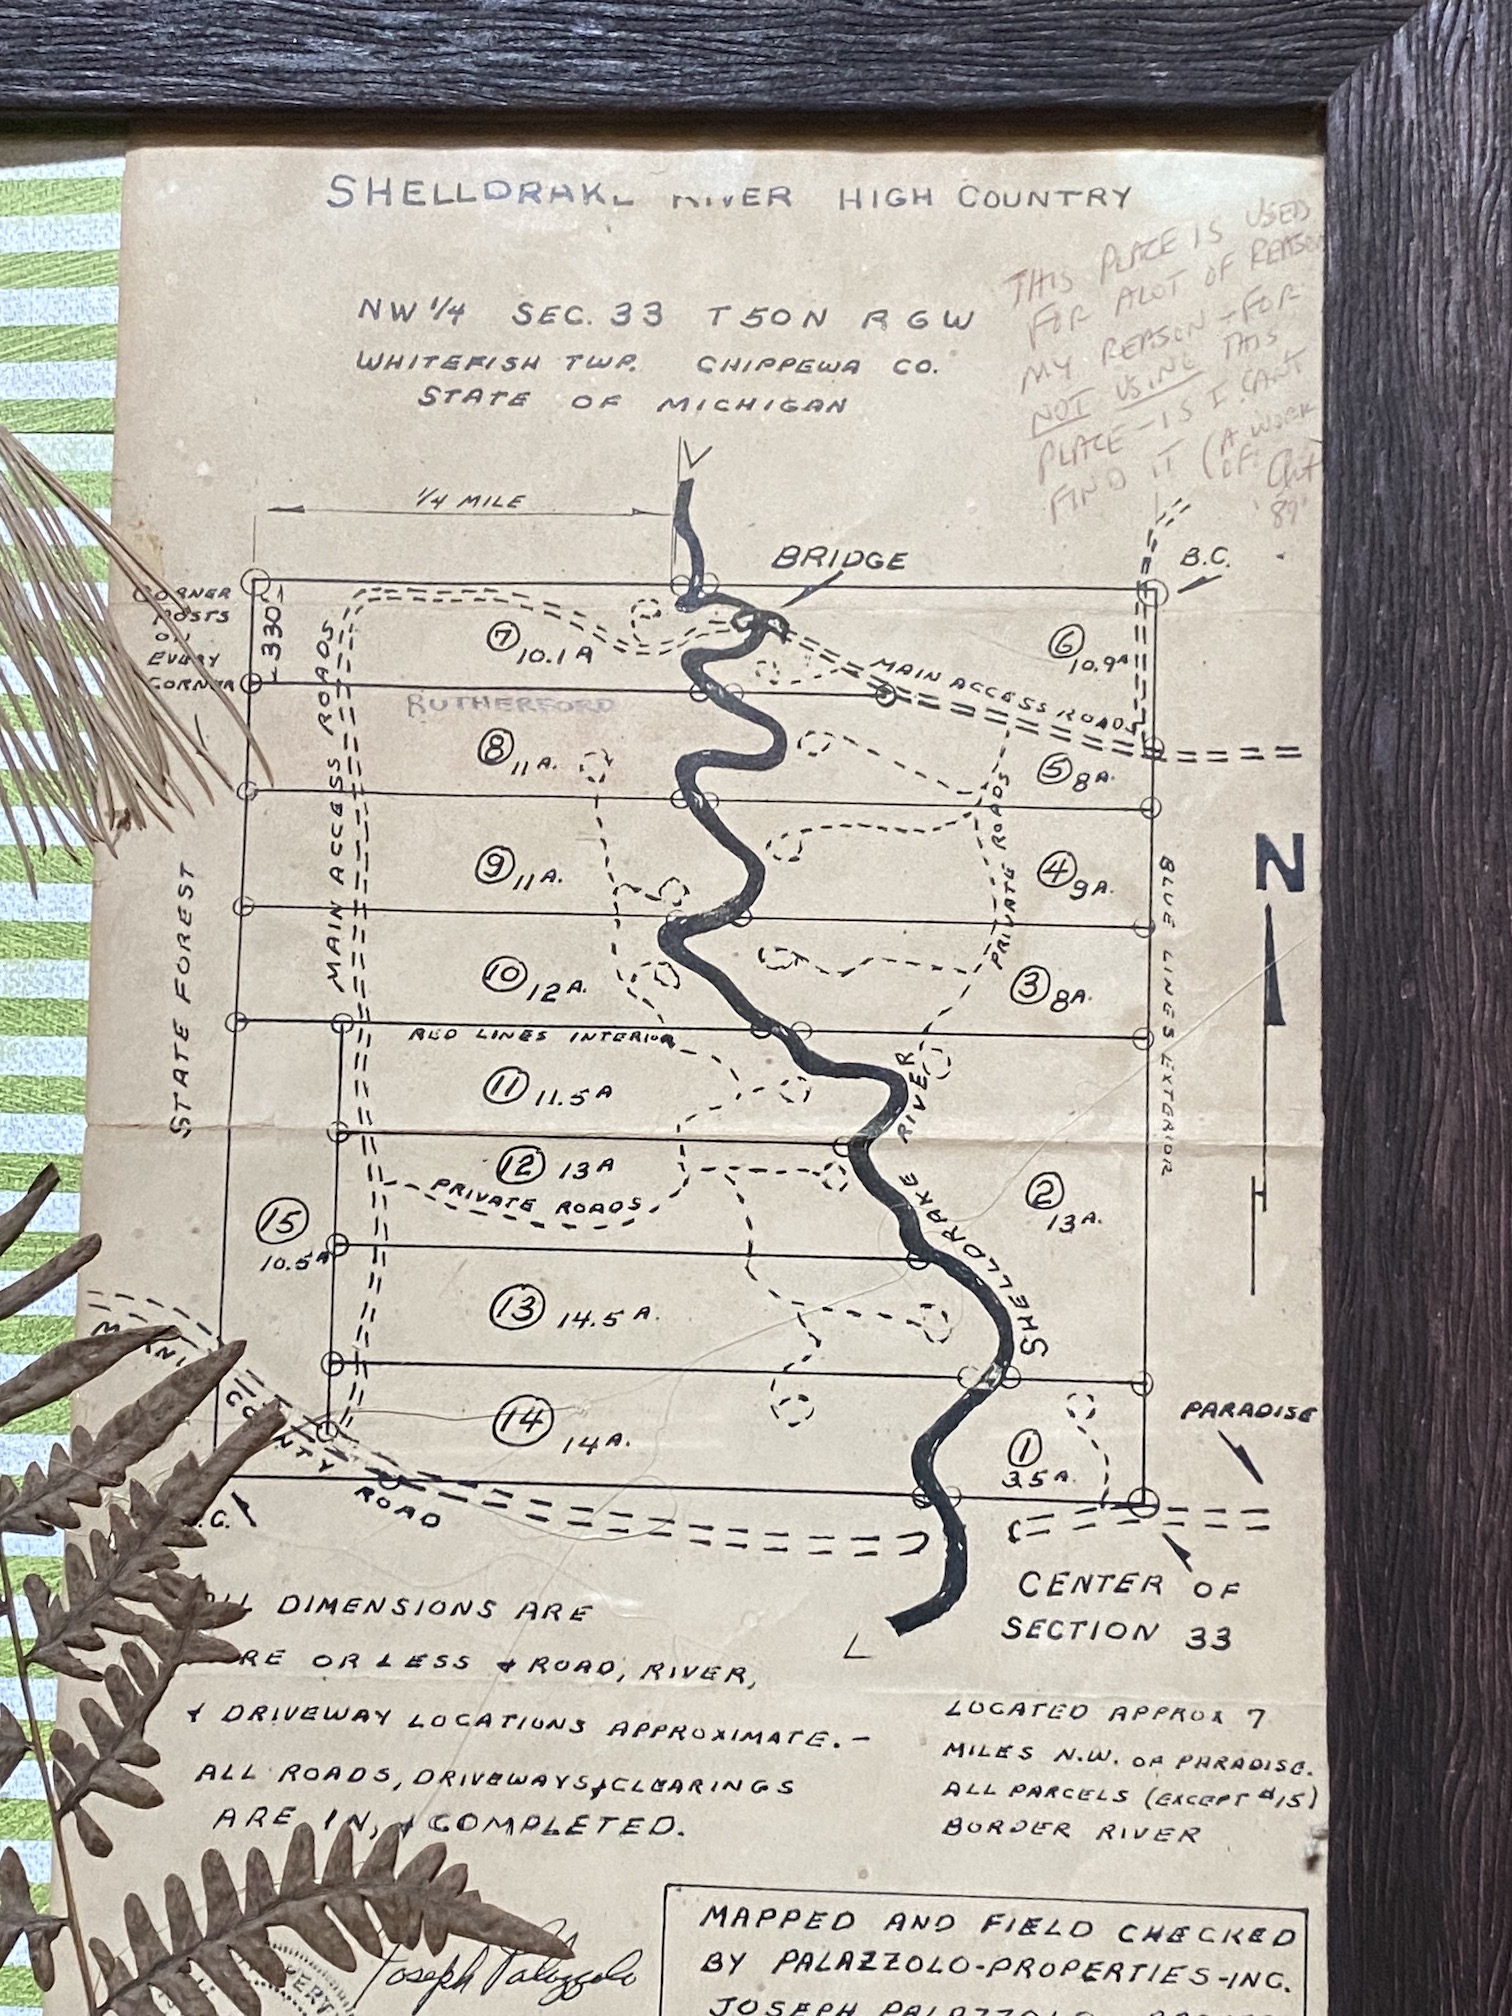 SHELLDRAKE RIVER HIGH COUNTRY
THIS PLACE IS USED
FOR ALOT OF REASON
MY REASON-FOR
NOT USING THIS
PLACE-IS I CAN'T
FIND IT (A WORK
OF Art
'87'
NW 1/4 SEC. 33 T50N R6W
WHITEFISH TWP. CHIPPEWA CO.
STATE OF MICHIGAN
1/4 MILE
BRIDGE
B.C.
CORNER
POSTS
ON
EVERY
CORNER
330'
7 10.1 A
6 10.9 A
MAIN ACCESS ROADS
MAIN ACCESS ROADS
RUTHERFORD
8 11 A.
5 8 A.
PRIVATE ROADS
9 11 A.
4 9 A.
N
BLUE LINES EXTERIOR
STATE FOREST
10 12 A.
3 8 A.
RED LINES INTERIOR
11 11.5 A
SHELLDRAKE RIVER
12 13 A
PRIVATE ROADS
2 13 A.
15
10.5 A
13 14.5 A.
14 14 A.
1
3.5 A.
PARADISE
COUNTY ROAD
.C.
CENTER OF
SECTION 33
DIMENSIONS ARE
RE OR LESS & ROAD, RIVER,
& DRIVEWAY LOCATIONS APPROXIMATE.-
ALL ROADS, DRIVEWAYS, & CLEARINGS
ARE IN, & COMPLETED.
LOCATED APPROX 7
MILES N.W. OF PARADISE.
ALL PARCELS (EXCEPT #15)
BORDER RIVER
Joseph Palazzolo
MAPPED AND FIELD CHECKED
BY PALAZZOLO-PROPERTIES-INC.
JOSEPH PALAZZOLO